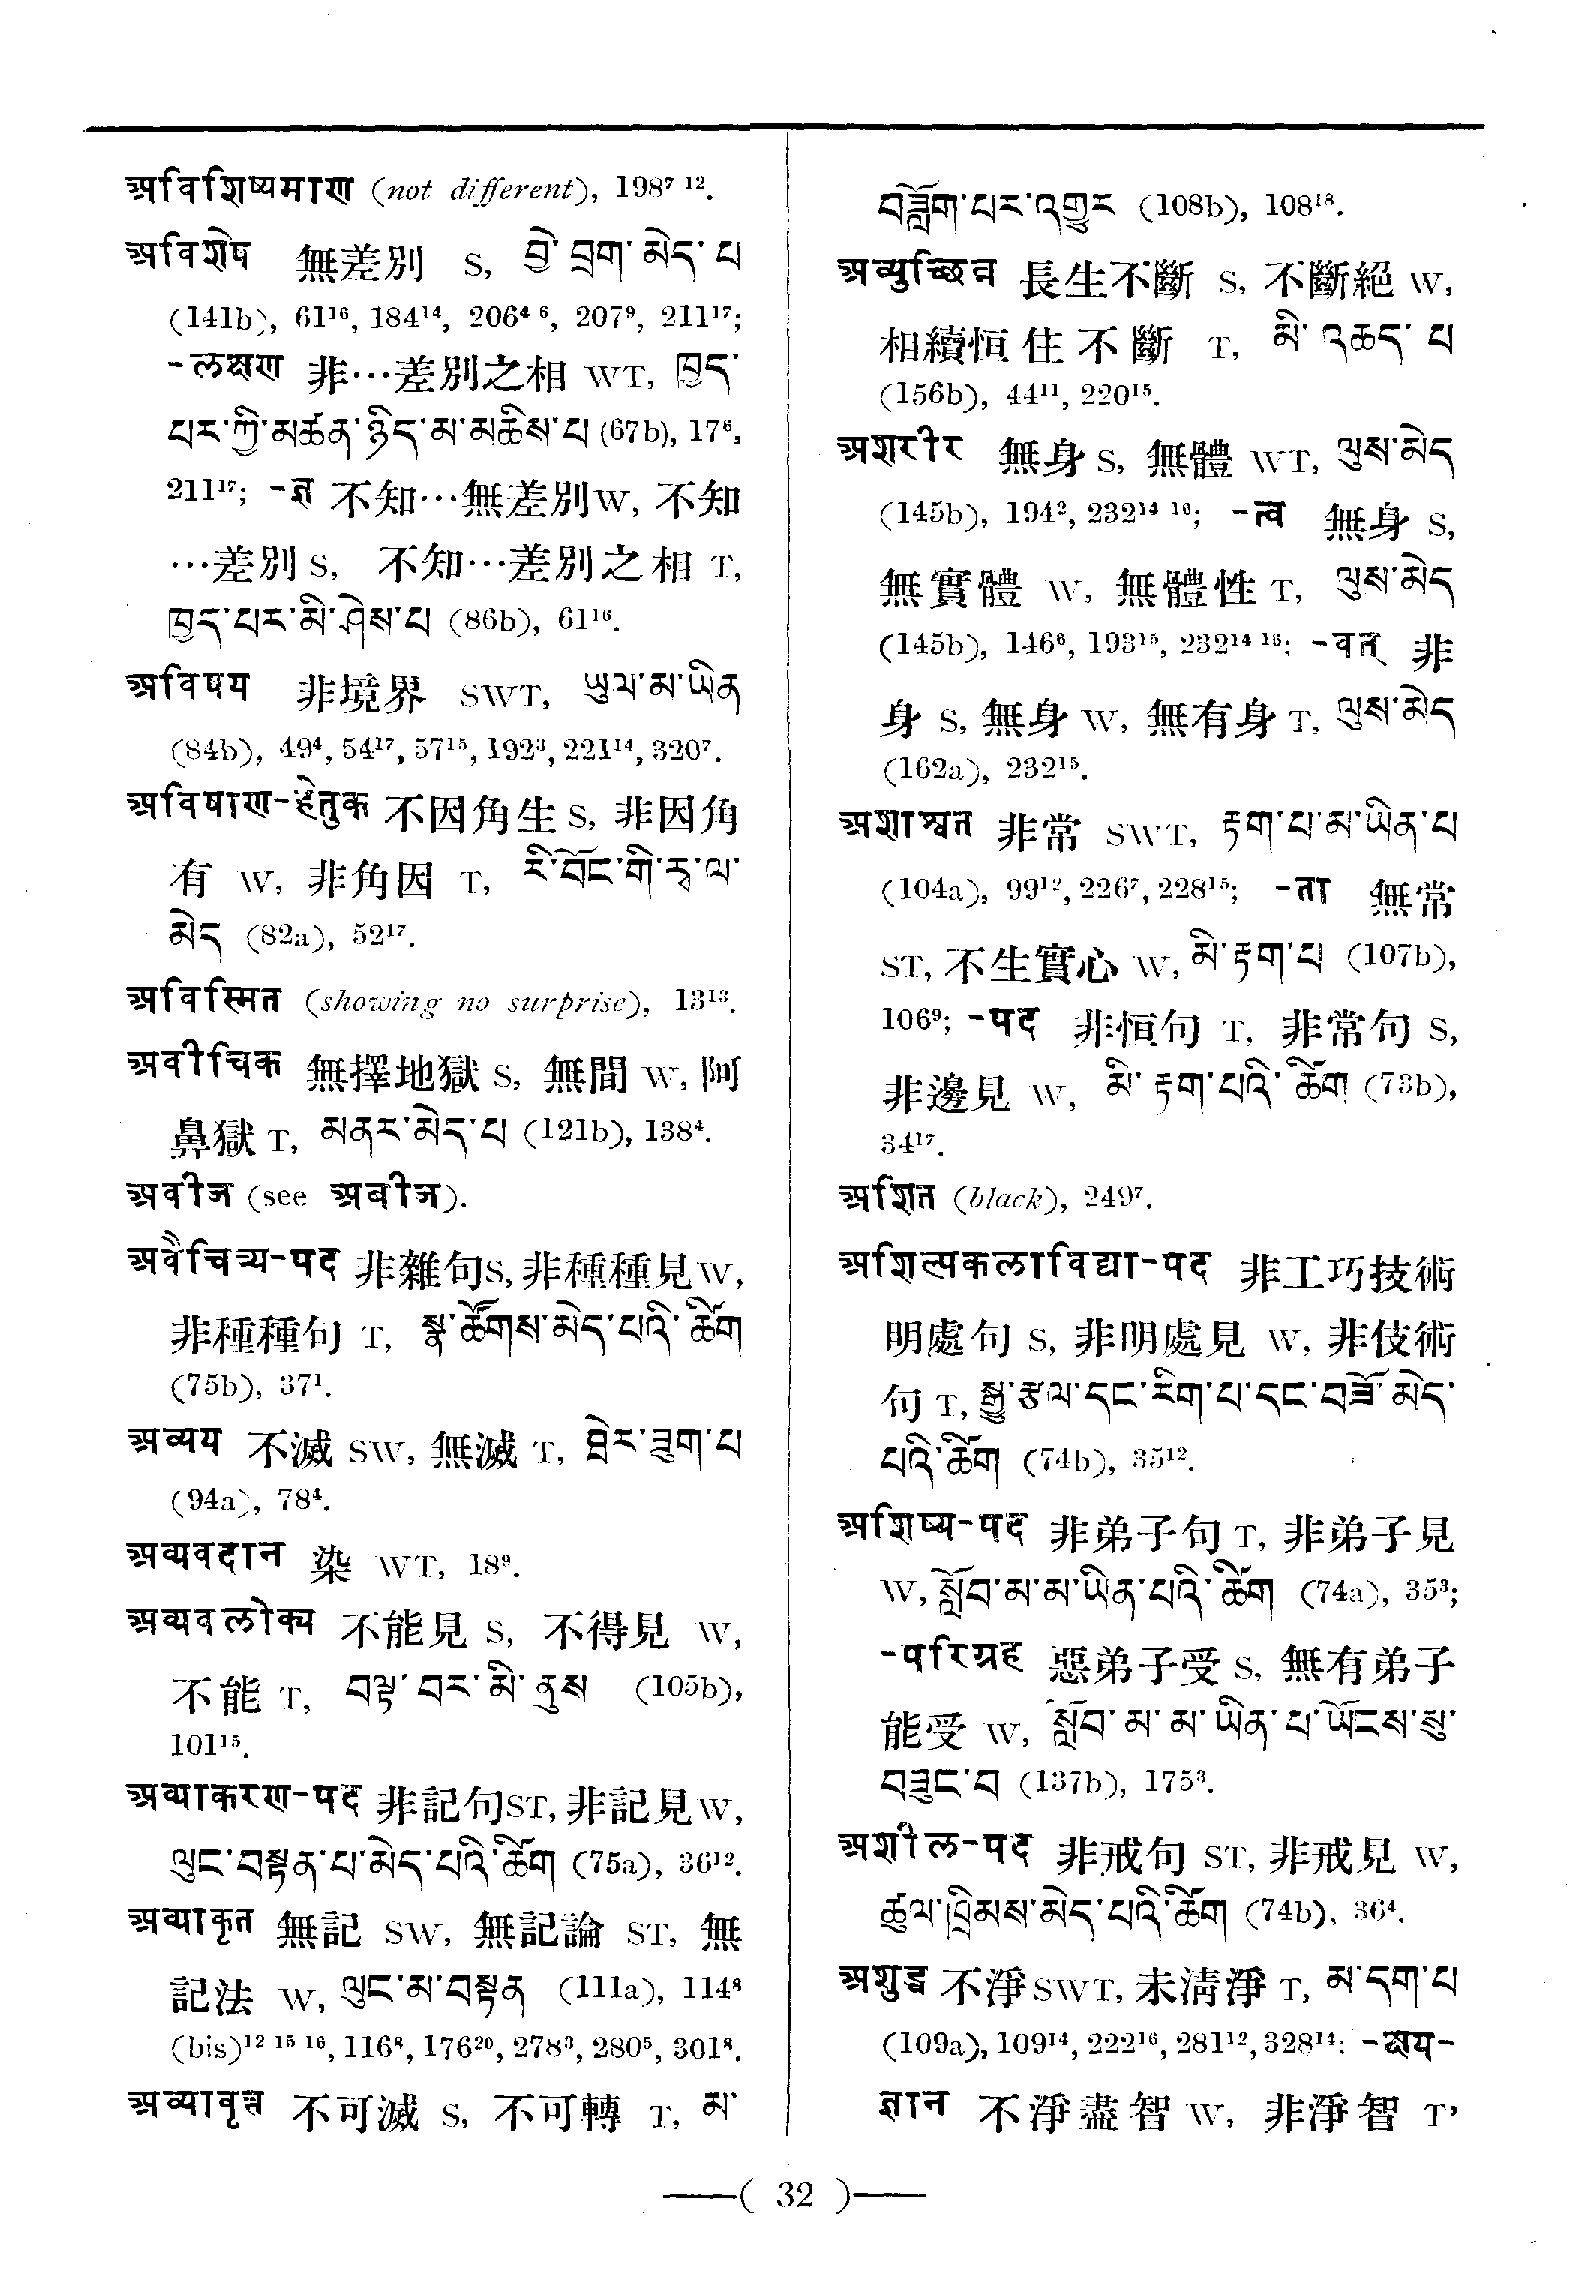 अविशिष्यमाण (not different), 198⁷ ¹².
अविशेष 無差別 S, བྱེ་བྲག་མེད་པ
(141b), 61¹⁶, 184¹⁴, 206⁴ ⁶, 207⁹, 211¹⁷;
-लक्षण 非…差別之相 WT, ཁྱད་
པར་ཀྱི་མཚན་ཉིད་མ་མཆིས་པ (67b), 17⁶,
211¹⁷; -ज्ञ 不知…無差別W, 不知
…差別 S, 不知…差別之相 T,
ཁྱད་པར་མི་ཤེས་པ (86b), 61¹⁶.
अविषय 非境界 SWT, ཡུལ་མ་ཡིན
(84b), 49⁴, 54¹⁷, 57¹⁵, 192³, 221¹⁴, 320⁷.
अविषाण-हेतुक 不因角生 S, 非因角
有 W, 非角因 T, རི་བོང་གི་རྭ་ལ་
མེད (82a), 52¹⁷.
अविस्मित (showing no surprise), 13¹³.
अवीचिक 無擇地獄 S, 無間 W, 阿
鼻獄 T, མནར་མེད་པ (121b), 138⁴.
अवीज (see अबीज).
अवैचित्र्य-पद 非雜句S, 非種種見W,
非種種句 T, སྣ་ཚོགས་མེད་པའི་ཚིག
(75b), 37¹.
अव्यय 不滅 SW, 無滅 T, ཐེར་ཟུག་པ
(94a), 78⁴.
अव्यवदान 染 WT, 18⁹.
अव्यवलोक्य 不能見 S, 不得見 W,
不能 T, བལྟ་བར་མི་ནུས (105b),
101¹⁵.
अव्याकरण-पद 非記句ST, 非記見W,
ལུང་བསྟན་པ་མེད་པའི་ཚིག (75a), 36¹².
अव्याकृत 無記 SW, 無記論 ST, 無
記法 W, ལུང་མ་བསྟན (111a), 114⁸
(bis)¹² ¹⁵ ¹⁶, 116⁸, 176²⁰, 278³, 280⁵, 301⁸.
अव्यावृत्त 不可滅 S, 不可轉 T, མ་
བཟློག་པར་འགྱུར (108b), 108¹⁸.
अव्युच्छिन्न 長生不斷 S, 不斷絕 W,
相續恒住不斷 T, མི་འཆད་པ
(156b), 44¹¹, 220¹⁵.
अशरीर 無身 S, 無體 WT, ལུས་མེད
(145b), 194², 232¹⁴ ¹⁶; -त्व 無身 S,
無實體 W, 無體性 T, ལུས་མེད
(145b), 146⁶, 193¹⁵, 232¹⁴ ¹⁶; -वत् 非
身 S, 無身 W, 無有身 T, ལུས་མེད
(162a), 232¹⁵.
अशाश्वत 非常 SWT, རྟག་པ་མ་ཡིན་པ
(104a), 99¹², 226⁷, 228¹⁵; -ता 無常
ST, 不生實心 W, མི་རྟག་པ (107b),
106⁹; -पद 非恒句 T, 非常句 S,
非邊見 W, མི་རྟག་པའི་ཚིག (73b),
34¹⁷.
अशित (black), 249⁷.
अशिल्पकलाविद्या-पद 非工巧技術
明處句 S, 非明處見 W, 非伎術
句 T, སྒྱུ་རྩལ་དང་རིག་པ་དང་བཟོ་མེད་
པའི་ཚིག (74b), 35¹².
अशिष्य-पद 非弟子句 T, 非弟子見
W, སློབ་མ་མ་ཡིན་པའི་ཚིག (74a), 35³;
-परिग्रह 惡弟子受 S, 無有弟子
能受 W, སློབ་མ་མ་ཡིན་པ་ཡོངས་སུ་
བཟུང་བ (137b), 175³.
अशील-पद 非戒句 ST, 非戒見 W,
ཚུལ་ཁྲིམས་མེད་པའི་ཚིག (74b), 36⁴.
अशुद्ध 不淨SWT, 未淸淨 T, མ་དག་པ
(109a), 109¹⁴, 222¹⁶, 281¹², 328¹⁴; -क्षय-
ज्ञान 不淨盡智 W, 非淨智 T,
—( 32 )—